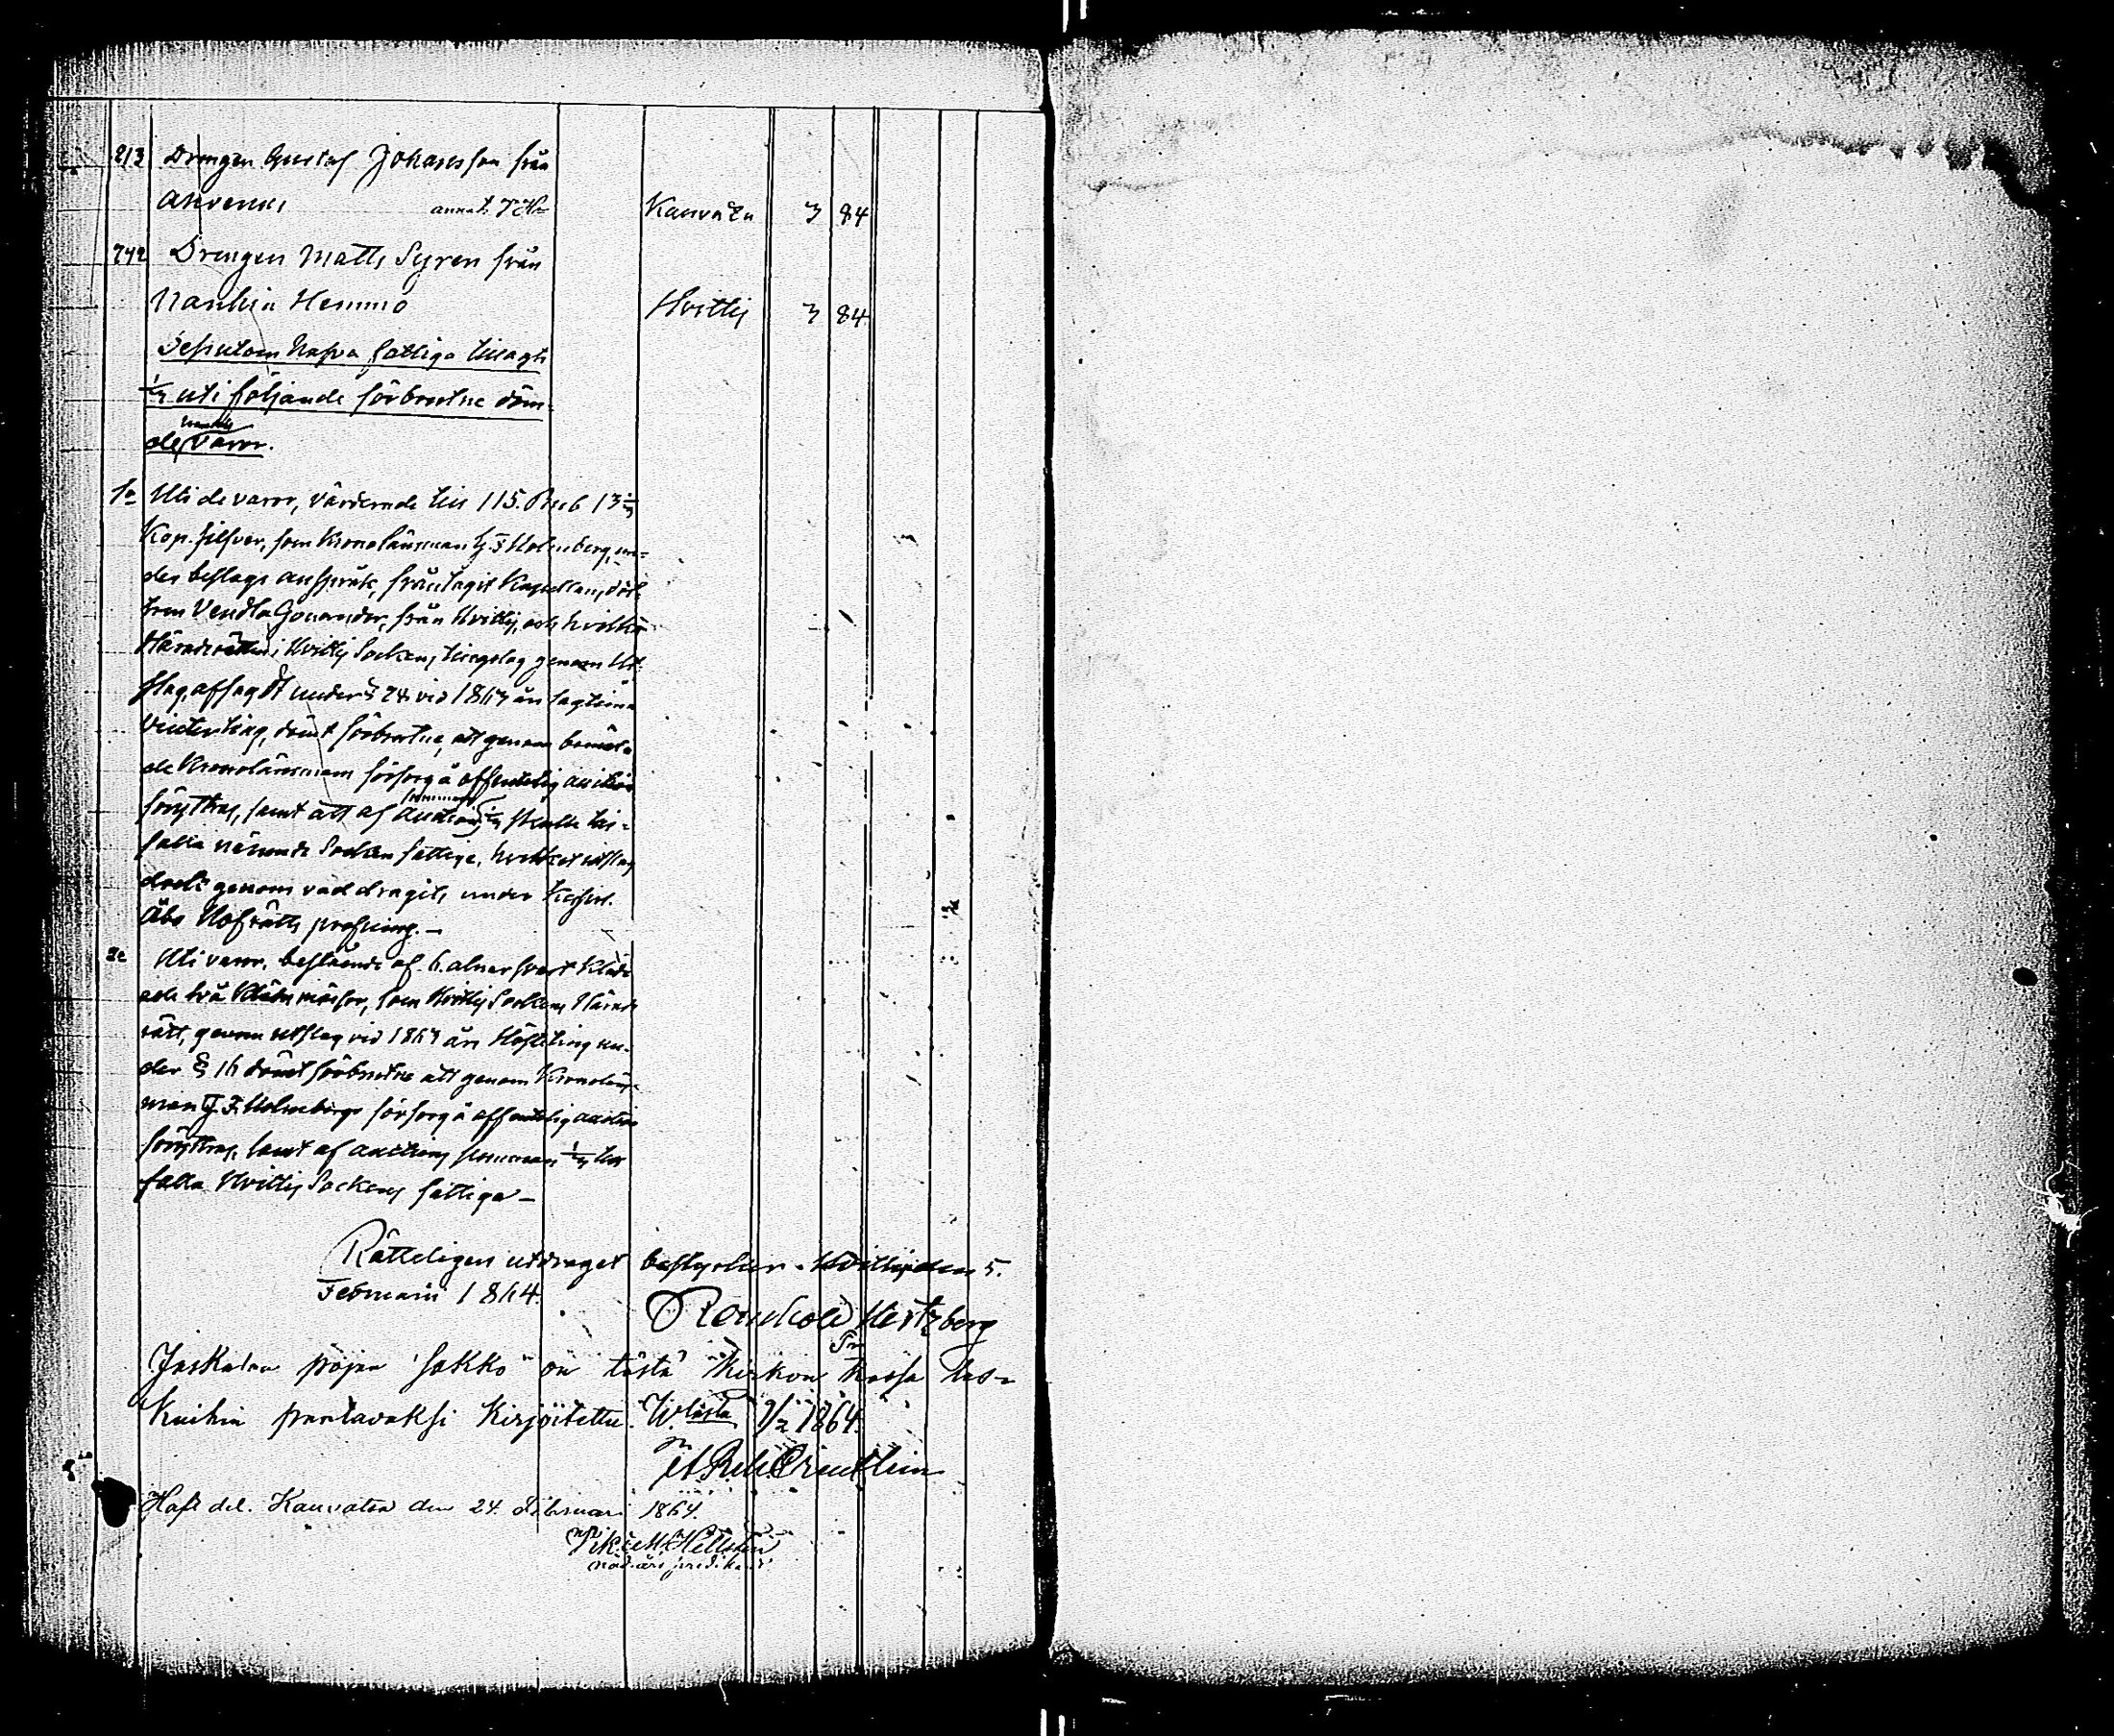 213 Drengen Gustaf Johansson från
Ahvenus annat. Kauvatsa 3 84
742 Drengen Matts Syren från
Nanhia Hemmo Hvittis 3 84
Dessutom hafva fattiga tillagts
1/3 uti följande förbrutne döm-
de varor.
1o Uti de varor, värderade till 115. Rub 13 1/3
Kop. silfver, som Kronolänsman G. F. Holmberg, un-
der beslags anspråk, fråntagit Kapellans dot-
tren Vendla Gonander, från Hvittis, och hvilka
Häradsrätten i Hvittis Sockens tingslag genom Ut-
slag, afsagdt under § 24 vid 1863 års lagtima
Vinterting, dömt förbrutne, att genom bemäl-
de Kronolänsmans försorg å offentelig auction
försyttras, samt att af auctions summan 1/3 skulle till-
falla nämnde Socken fattige, hvilket utslag
dock genom vad dragits under Kejserl.
Åbo Hofrätts profning.-
2o Uti varor, bestående af 6. alnar svart Kläde
och två Klädes mössor, som Hvittis Sockens Härads
rätt, genom utslag vid 1863 års Höstting un-
der § 16 dömt förbrutne att genom Kronoläns-
man G. F. Holmbergs försorg å offentelig auction
försyttras, samt af auctions summan 1/3 till
falla Hvittis Sockens fattiga -
Rätteligen utdraget bestyrker. Hvittis den 5.
Februarii 1864.
Hertzberg
Jaskalan pojan sakko on tästä Kirkon Kassa las-
kuihin Kirjoitettu. 1864.
Haft del. Kauvatsa den 24. Februari 1864.
Hellstén
nådårs predikant